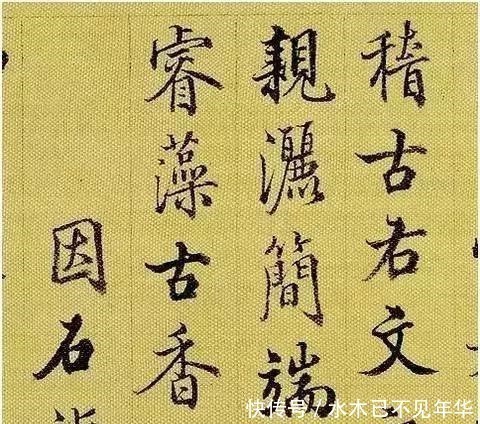 稽古右文
親灑簡端
睿藻古香
因石
快传号 / 水木已不见年华